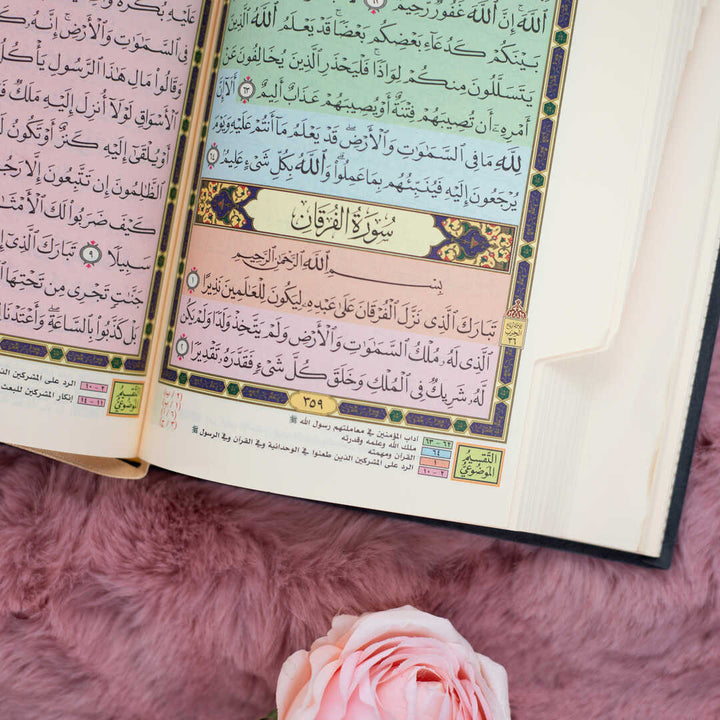 ٱللَّهَۚ إِنَّ ٱللَّهَ غَفُورٌ رَّحِيمٌ ٦٢
بَيْنَكُمْ كَدُعَآءِ بَعْضِكُم بَعْضًاۚ قَدْ يَعْلَمُ ٱللَّهُ ٱلَّذِينَ
يَتَسَلَّلُونَ مِنكُمْ لِوَاذًاۚ فَلْيَحْذَرِ ٱلَّذِينَ يُخَالِفُونَ عَنْ
أَمْرِهِۦٓ أَن تُصِيبَهُمْ فِتْنَةٌ أَوْ يُصِيبَهُمْ عَذَابٌ أَلِيمٌ ٦٣ أَلَآ إِنَّ
لِلَّهِ مَا فِى ٱلسَّمَٰوَٰتِ وَٱلْأَرْضِۖ قَدْ يَعْلَمُ مَآ أَنتُمْ عَلَيْهِ وَيَوْمَ
يُرْجَعُونَ إِلَيْهِ فَيُنَبِّئُهُم بِمَا عَمِلُوا۟ۗ وَٱللَّهُ بِكُلِّ شَىْءٍ عَلِيمٌۢ ٦٤
سُورَةُ الْفُرْقَانِ
بِسْمِ ٱللَّهِ ٱلرَّحْمَٰنِ ٱلرَّحِيمِ
تَبَارَكَ ٱلَّذِى نَزَّلَ ٱلْفُرْقَانَ عَلَىٰ عَبْدِهِۦ لِيَكُونَ لِلْعَٰلَمِينَ نَذِيرًا ١
ٱلَّذِى لَهُۥ مُلْكُ ٱلسَّمَٰوَٰتِ وَٱلْأَرْضِ وَلَمْ يَتَّخِذْ وَلَدًا وَلَمْ يَكُن
لَّهُۥ شَرِيكٌ فِى ٱلْمُلْكِ وَخَلَقَ كُلَّ شَىْءٍ فَقَدَّرَهُۥ تَقْدِيرًا ٢
٣٥٩
التقسيم الموضوعي
٦٢-٦٣ آداب المؤمنين في معاملتهم رسول الله ﷺ
٦٤ ملك الله وعلمه وقدرته
١ القرآن ومهمته
٢-١٠ الرد على المشركين الذين طعنوا في الوحدانية وفي القرآن وفي الرسول ﷺ
عَلَيْهِ بُكْرَةً وَ
فِى ٱلسَّمَٰوَٰتِ وَٱلْأَرْضِۚ إِنَّهُۥ
وَقَالُوا۟ مَالِ هَٰذَا ٱلرَّسُولِ يَأْ
ٱلْأَسْوَاقِۙ لَوْلَآ أُنزِلَ إِلَيْهِ مَلَكٌ
أَوْ يُلْقَىٰٓ إِلَيْهِ كَنزٌ أَوْ تَكُونُ
ٱلظَّٰلِمُونَ إِن تَتَّبِعُونَ إِلَّا رَجُ
كَيْفَ ضَرَبُوا۟ لَكَ ٱلْأَمْثَ
سَبِيلًا ٩ تَبَارَكَ ٱلَّذِىٓ
جَنَّٰتٍ تَجْرِى مِن تَحْتِهَا
بَلْ كَذَّبُوا۟ بِٱلسَّاعَةِۖ وَأَعْتَدْنَا
التقسيم الموضوعي
٢-١٠ الرد على المشركين
١١-١٤ إنكار المشركين للبعث